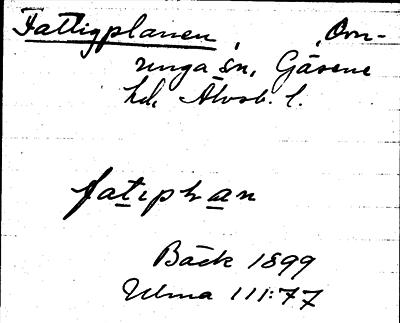 Fattigplanen, Orn-
unga sn, Gäsene
hd, Älvsb. l.
fatiphan
Bäck 1899
Ulma 111:77